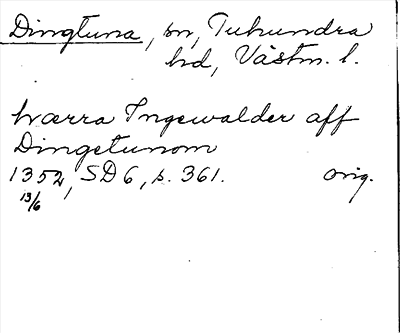 Dingtuna, sn, Tuhundra
hd, Västm. l.
hærra Ingewalder aff
Dingetunom
1352, SD 6, s. 361. orig.
13/6